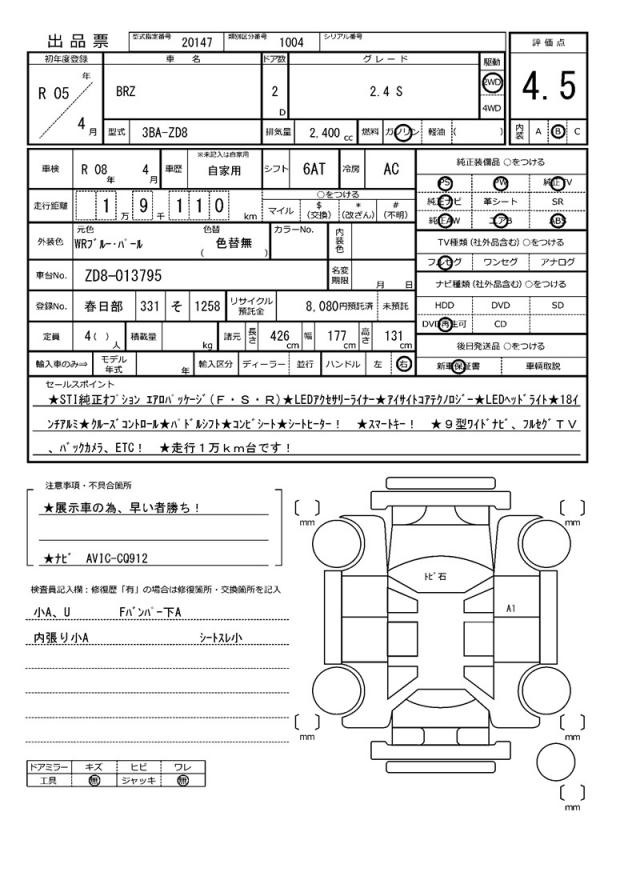 出品票 型式指定番号 20147 類別区分番号 1004 シリアル番号
評価点
初年度登録 車名 ドア数 グレード 駆動
R 05 年 BRZ 2 D 2.4 S 2WD 4.5
4 月 4WD
型式 3BA-ZD8 排気量 2,400 cc 燃料 ガソリン 軽油 ( ) 内装 A B C
車検 R 08 年 4 月 車歴 ※未記入は自家用 自家用 シフト 6AT 冷房 AC 純正装備品 ○をつける
PS PW 純正TV
走行距離 1 万 9 千 1 1 0 km ○をつける 純正ナビ 革シート SR
マイル $ (交換) * (改ざん) # (不明) 純正AW エアB ABS
外装色 元色 WRブルー・パール 色替 ( 色替無 ) カラーNo. 内装色 TV種類 (社外品含む) ○をつける
フルセグ ワンセグ アナログ
車台No. ZD8-013795 名変期限 月 日 ナビ種類 (社外品含む) ○をつける
登録No. 春日部 331 そ 1258 リサイクル預託金 8,080円預託済 未預託 HDD DVD SD
DVD再生可 CD
定員 4( ) 人 積載量 kg 諸元 長さ 426 cm 幅 177 cm 高さ 131 cm 後日発送品 ○をつける
輸入車のみ⇒ モデル年式 年 輸入区分 ディーラー 並行 ハンドル 左 右 新車保証書 車輌取説
セールスポイント
★STI純正オプション エアロパッケージ(F・S・R)★LEDアクセサリーライナー★アイサイトコアテクノロジー★LEDヘッドライト★18イ
ンチアルミ★クルーズコントロール★パドルシフト★コンビシート★シートヒーター! ★スマートキー! ★9型ワイドナビ、フルセグTV
、バックカメラ、ETC! ★走行1万km台です!
注意事項・不具合箇所
★展示車の為、早い者勝ち!
★ナビ AVIC-CQ912
検査員記入欄:修復歴「有」の場合は修復箇所・交換箇所を記入
小A、U Fバンパー下A
内張り小A シートスレ小
ドアミラー キズ ヒビ ワレ
工具 無 ジャッキ 無
[ ] mm [ ] mm
トビ石
A1
[ ] mm [ ] mm
[ ] mm